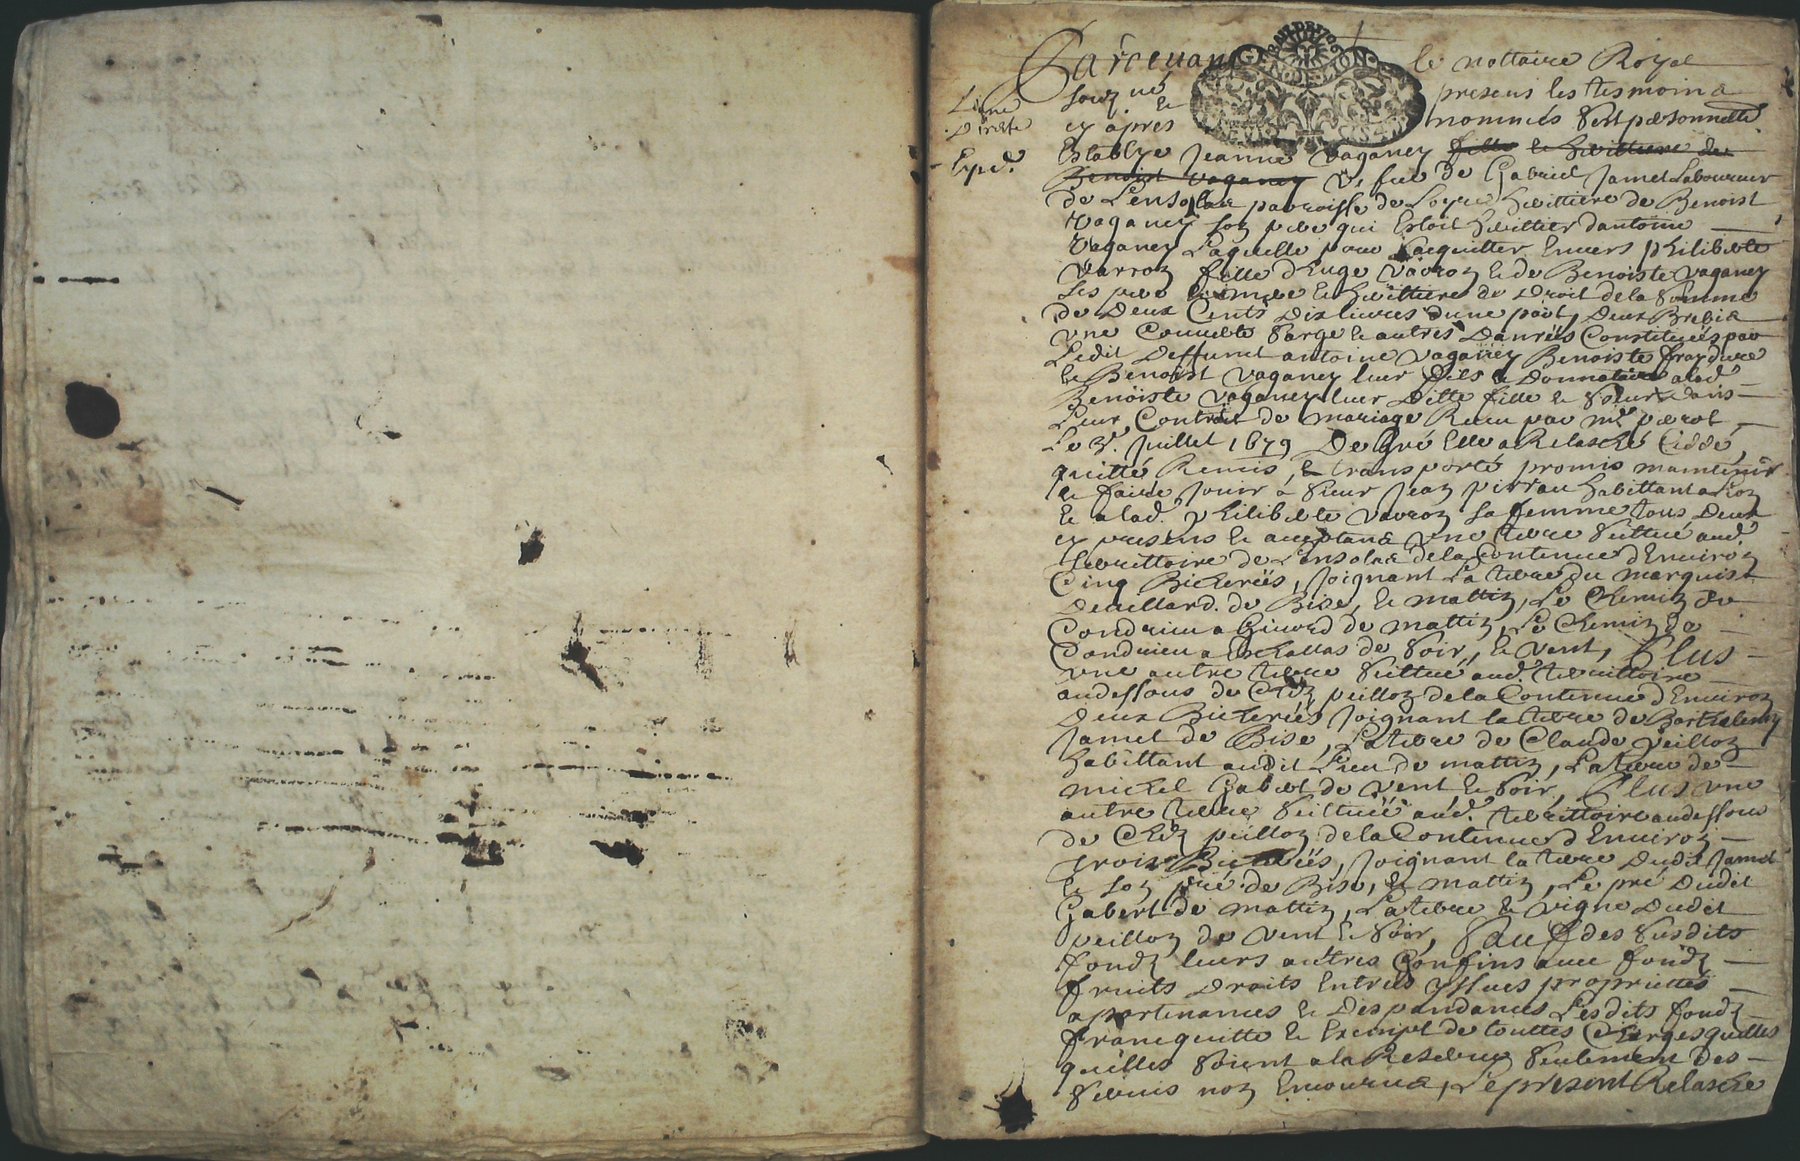 Pardevant le nottaire Royal
Ligne
Directe
Expd.
souzné & presens les tesmoins
cy apres nommés sest personnelle
Establye Jeanne vaganey fille & herittiere de
Benoist vaganey vefue de Gabriel Jamet Laboureur
de Lensolas parroisse de Loyre herittiere de Benoist
vaganey son pere qui Estoit herittier dantoine
vaganey Laquelle pour sacquitter Envers philiberte
varron fille dhuge varron & de Benoiste vaganey
ses pere & mere & herittiere de Droit de la somme
de Deux Cents Dix livres dune part, Deux Brebis
une Couverte sarge & autres Danrées Constituées par
Ledit Deffunct antoine vaganey Benoiste fraydure
& Benoist vaganey leur fils & Donnataire alad.
Benoiste vaganey leur Ditte fille & soeur dans
Leur Contrat de mariage Receu par mr perot
Le 3. Juillet 1679 De gré Elle a Relasché Ceddé
quitté Remis, & transporté promis maintenir
& faire Jouir à sieur Jean pirrau habittant
& alad. philiberte varron sa femme tous Deux
cy presens & acceptans une terre scittue aud.
territtoire de Lensolas de la Contenue dEnviron
Cinq Bicherées, Joignant La terre du marquis
de Bise, & mattin, Le Chemin de
Condrieu a Givord de mattin, Le Chemin de
Condrieu a Eschallas de soir, & vent, Plus
une autre terre scittué aud. territtoire
au dessous de Chez peillon de la Contenue dEnviron
Deux Bicherées Joignant la terre de Barthelemy
Jamet de Bise, La terre de Claude peillon
habittant audit Lieu de mattin, La terre de
michel Gabert de vent & soir, Plus une
autre terre scittuée aud. territtoire au dessous
de Chez peillon de la Contenue dEnviron
trois Bicherées, Joignant la terre dudit Jamet
& son pré de Bise, & mattin, Le pré dudit
Gabert de mattin, La terre & vigne dudit
peillon de vent & soir, sauf des susdits
fondz leurs autres Confins avec fondz
fruits droits Entrées yssues proprietes
apartenances & Despandances Lesdits fondz
franc quitte & Exempt de touttes Charges quelles
quelles soient a la Reserve seulement des
servis non Encourus, Le present Relasché